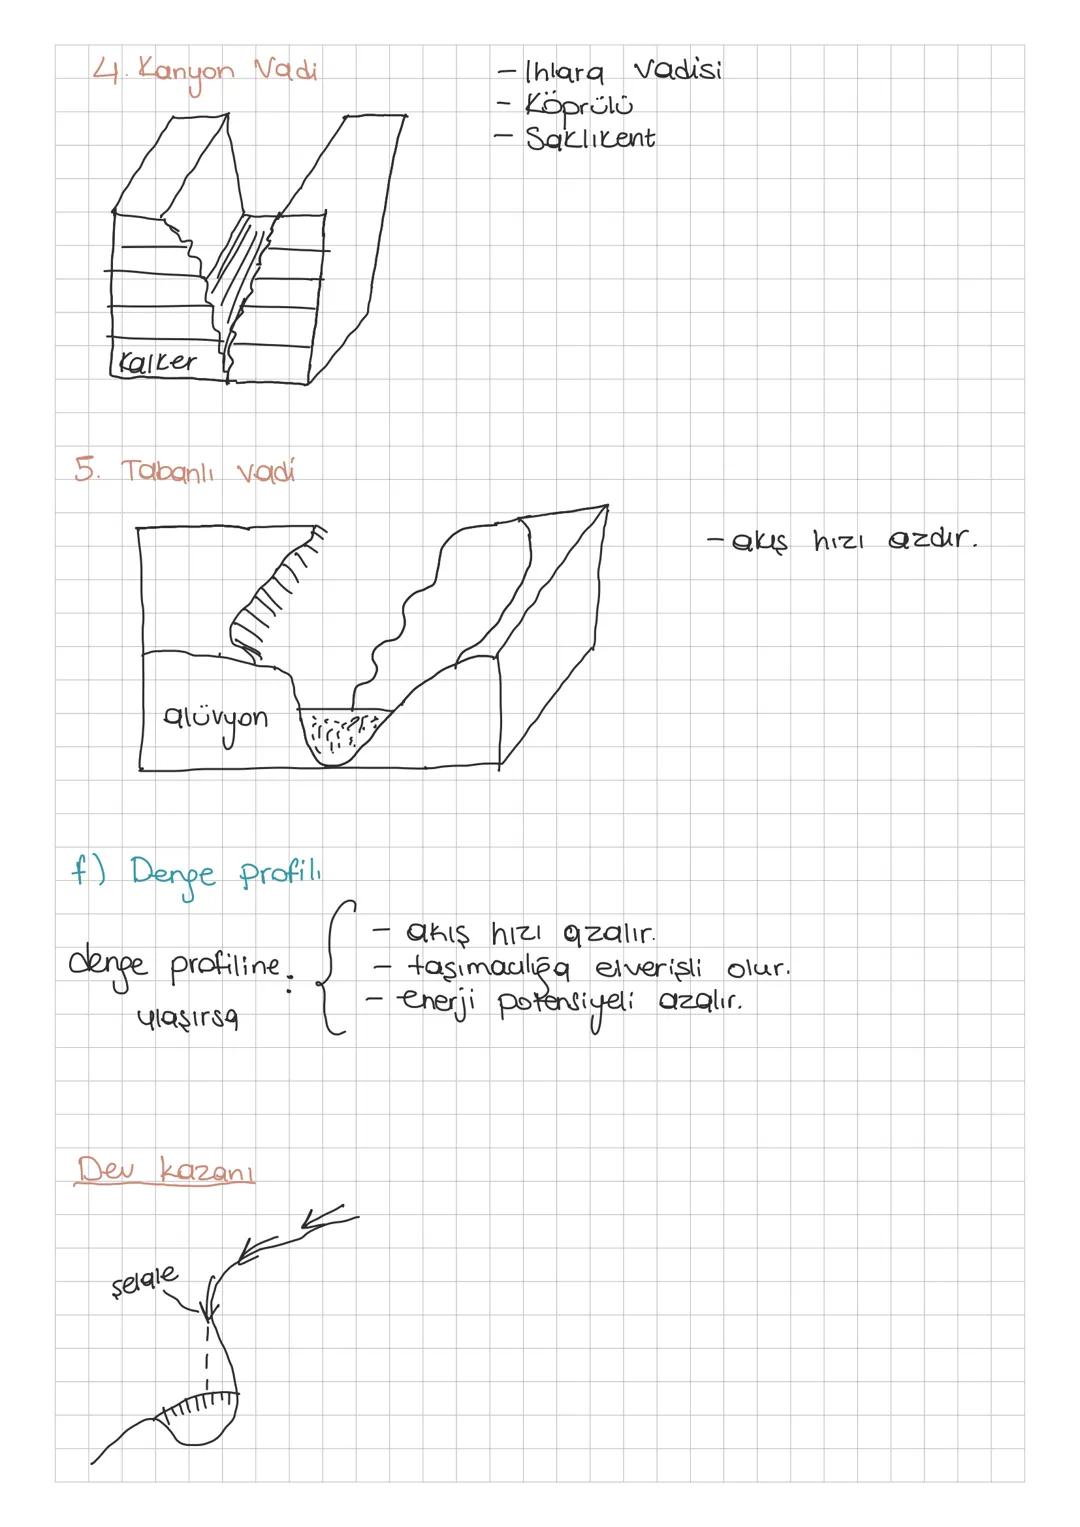 4. Kanyon Vadi
- Ihlara Vadisi
- Köprülü
- Saklıkent
Kalker
5. Tabanlı vadi
- akış hızı azdır.
alüvyon
f) Denge profili
denge profiline:
ulaşırsa
- akış hızı azalır.
- taşımacılığa elverişli olur.
- enerji potensiyeli azalır.
Dev kazanı
şelale